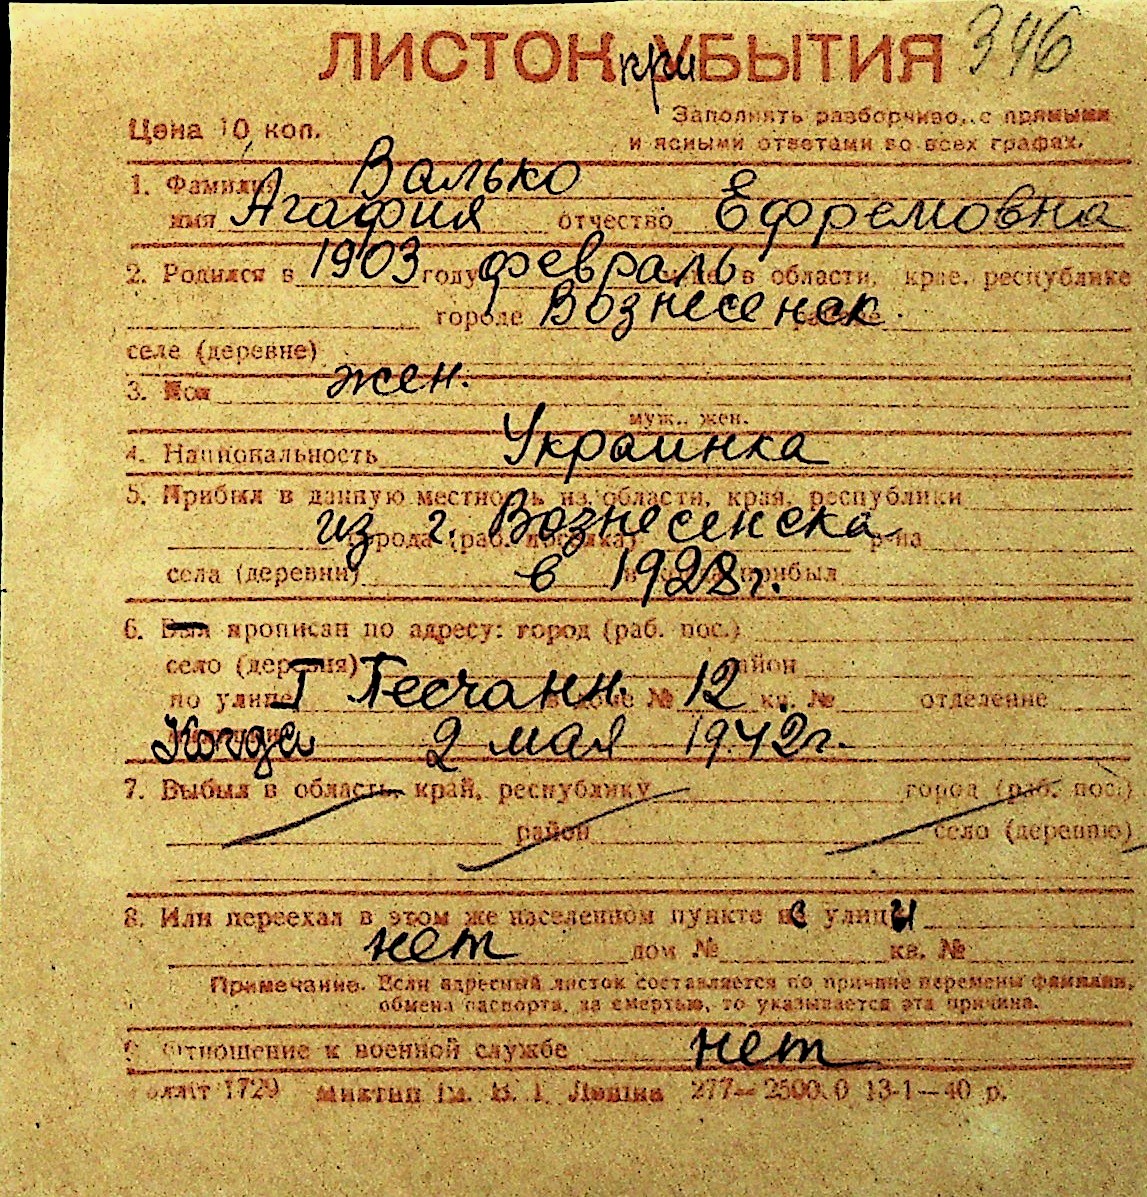 ЛИСТОК при УБЫТИЯ 346
Цена 10 коп.
Заполнять разборчиво, с прямыми
и ясными ответами во всех графах.
1. Фамилия Валько
имя Агафия отчество Ефремовна
2. Родился в 1903 году февраль в области, крае, республике
городе Вознесенск
селе (деревне)
3. Пол жен.
муж., жен.
4. Национальность Украинка
5. Прибыл в данную местность из области, края, республики
из г. Вознесенска
города (раб. поселка) р-на
села (деревни) в 1928 г. прибыл
6. Был прописан по адресу: город (раб. пос.)
село (деревня) район
по улице Песчанн. доме № 12 кв. № отделение
Когда 2 мая 1942 г.
7. Выбыл в область, край, республику город (раб. пос.)
район село (деревню)
8. Или переехал в этом же населенном пункте с улицы
нет дом № кв. №
Примечание. Если адресный листок составляется по причине перемены фамилии,
обмена паспорта, за смертью, то указывается эта причина.
9. Отношение к военной службе нет
1729 им. В. І. Леніна 277—2500.0 13-1—40 р.